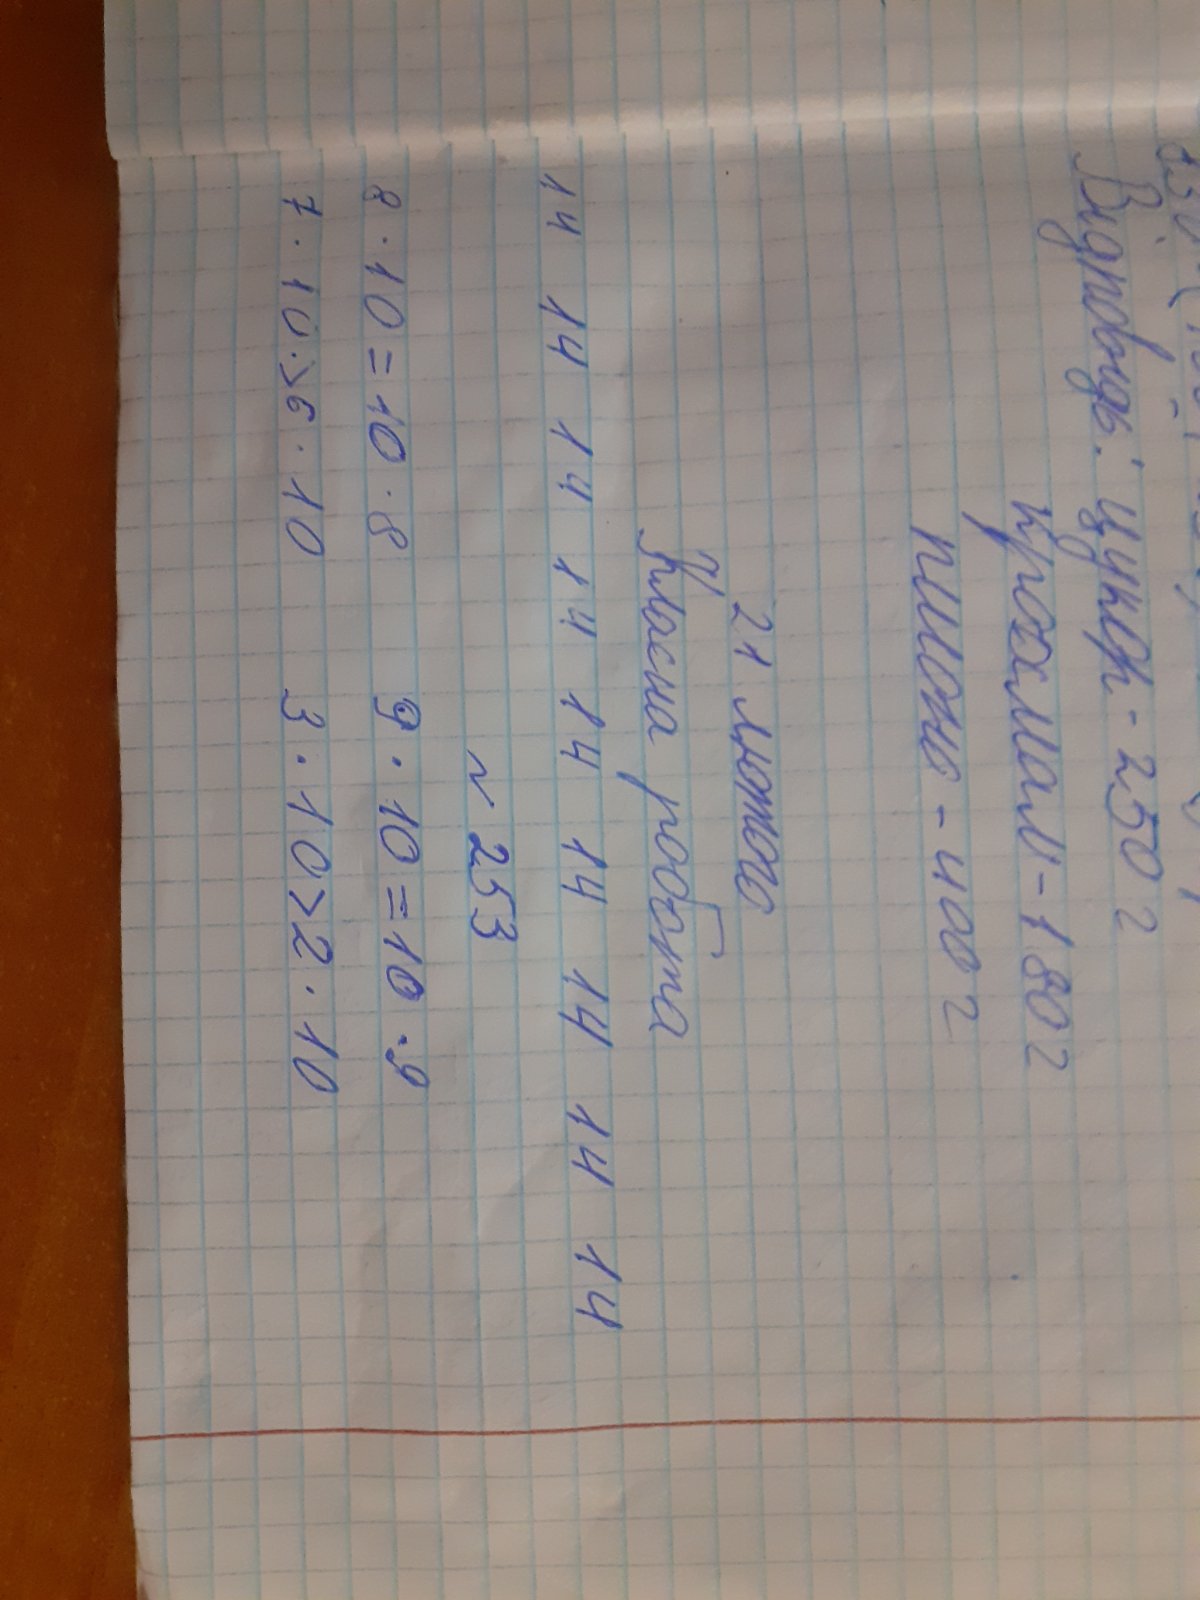 Відповідь: цукру - 250 г
крохмалю - 180 г
пшоно - 400 г
21 лютого
Класна робота
14 14 14 14 14 14 14 14 14
№ 253
8 · 10 = 10 · 8 9 · 10 = 10 · 9
7 · 10 > 6 · 10 3 · 10 > 2 · 10